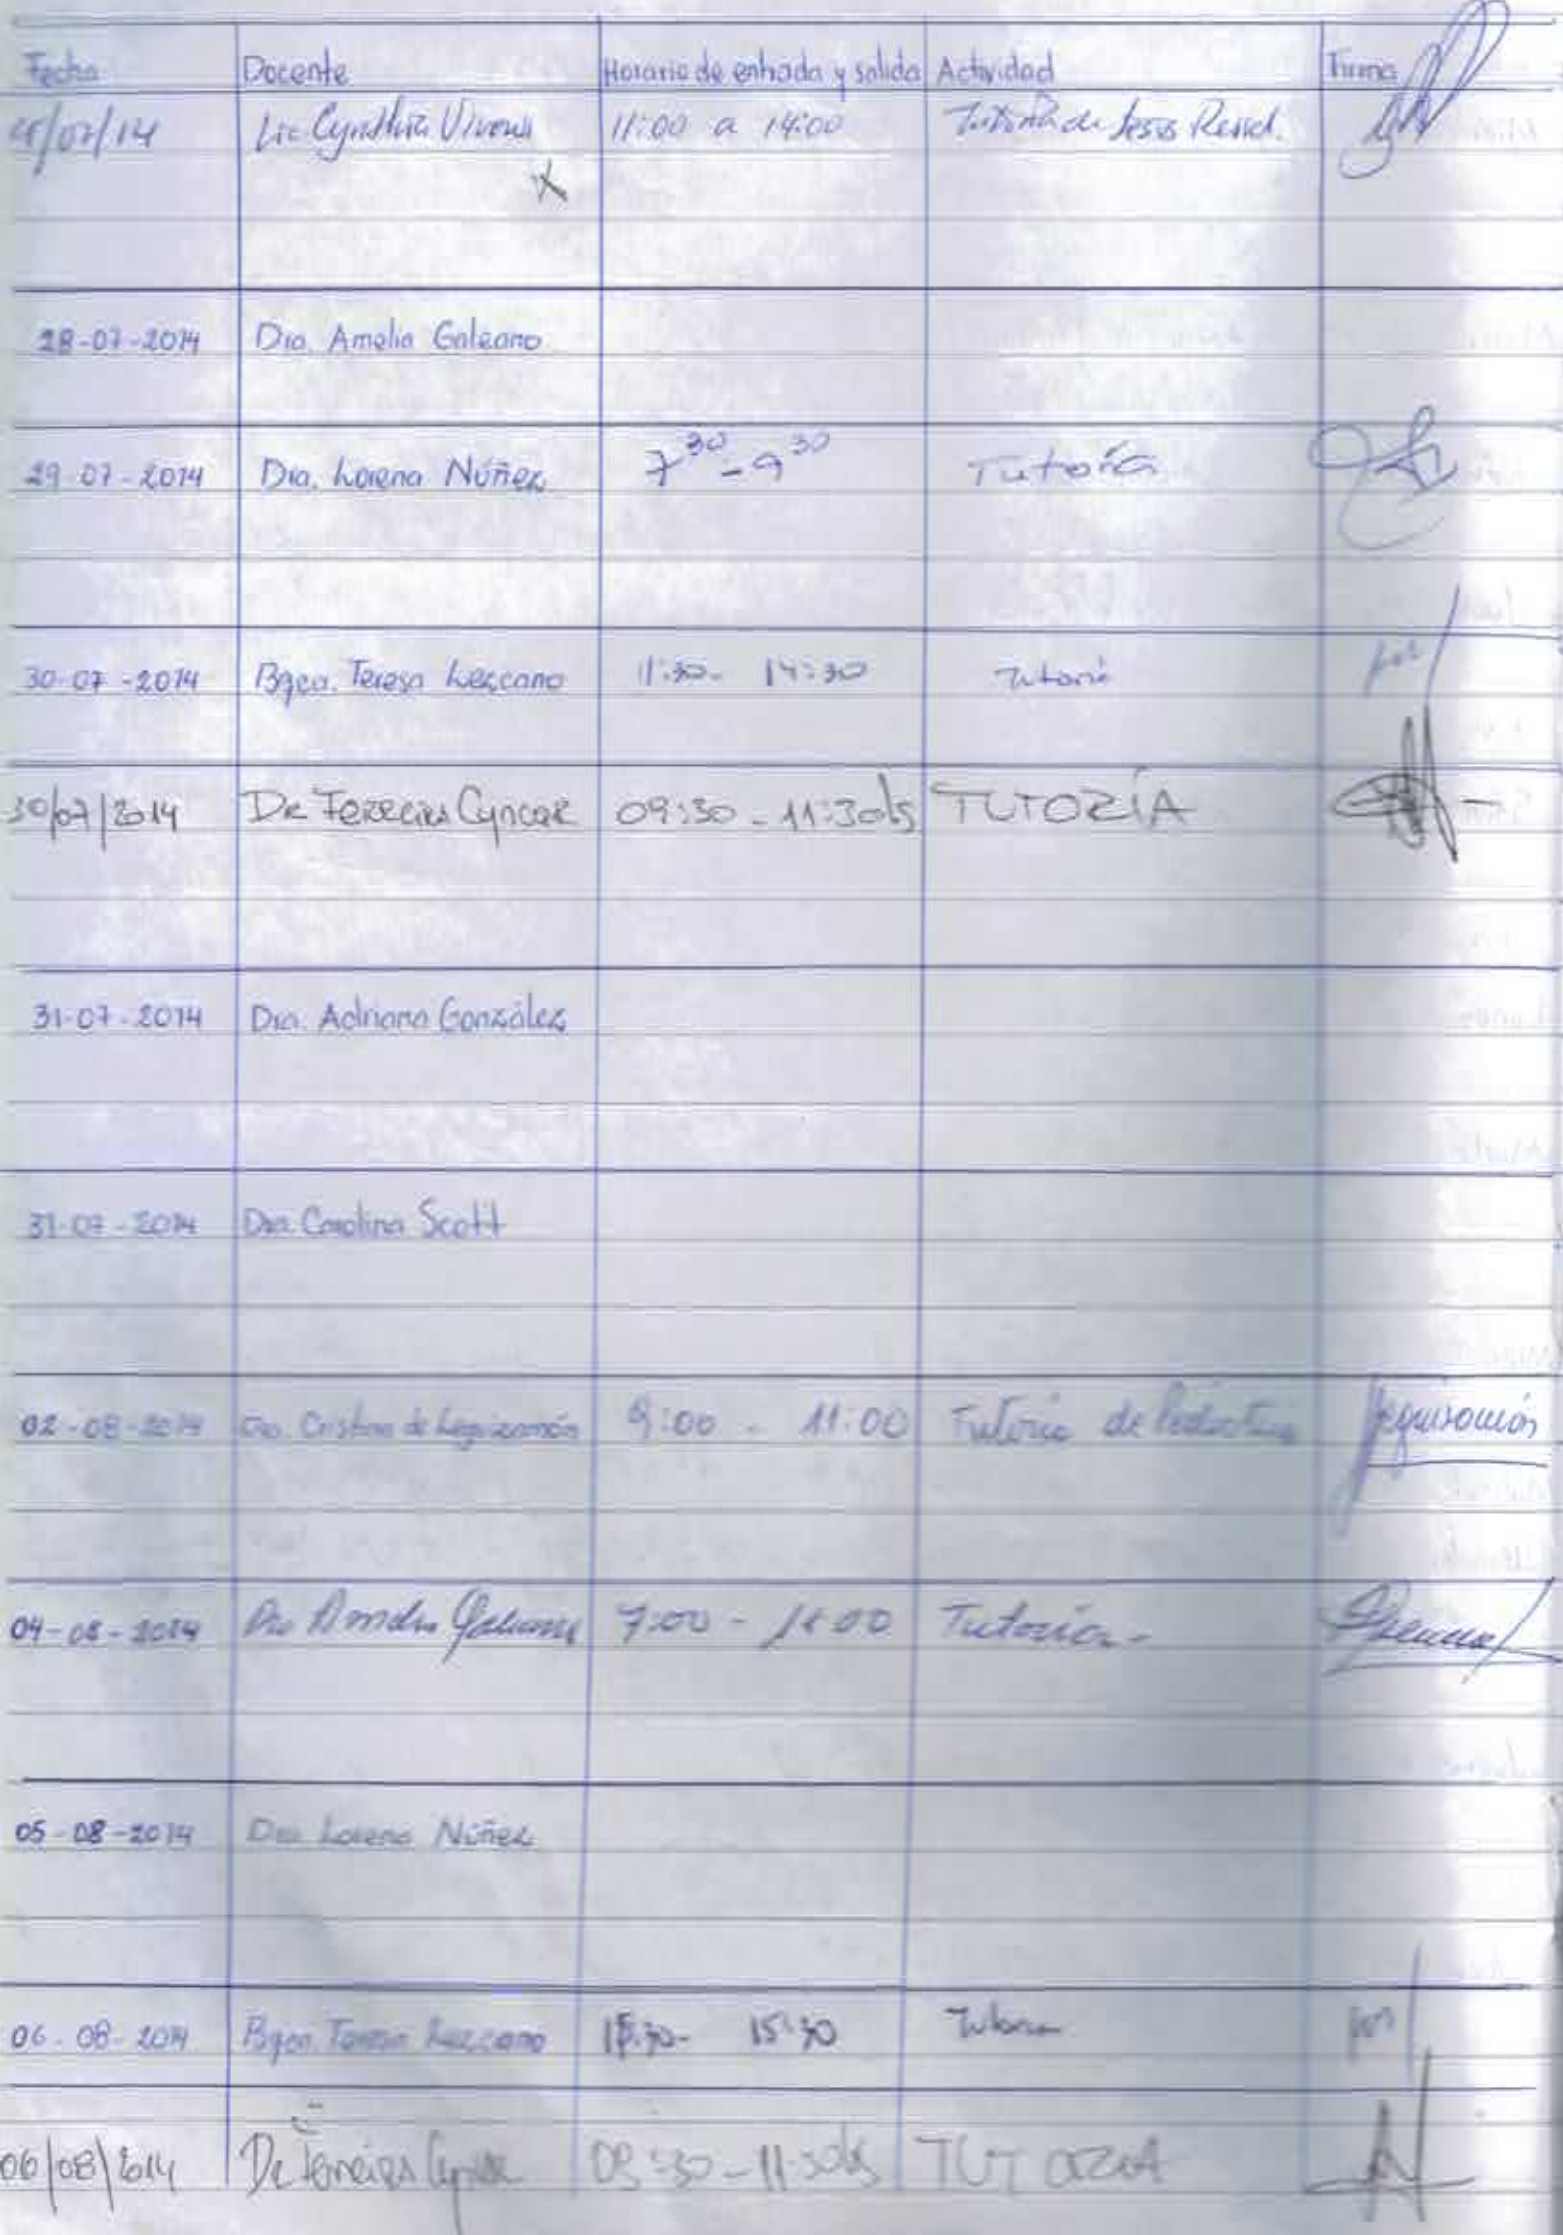 Fecha Docente Horario de entrada y salida Actividad Firma
/07/14 Lic Cynthia 11:00 a 14:00 Tutoría de
28-07-2014 Dra. Amelia Galeano
29-07-2014 Dra. Lorena Núñez 7 30 - 9 30 Tutoría
30-07-2014 Bqca. Teresa Lezcano 11:30- 14:30 Tutoria
30/07/2014 Dr Ferreira 09:30 - 11:30 TUTORÍA
31-07-2014 Dra. Adriana González
31-07-2014 Dra. Carolina Scott
02-08-2014 Dra. Cristina de Leguizamón 9:00 - 11:00 Tutoría de Leguizamón
04-08-2014 Dra Amelia Galeano 7:00 - Tutoria-
05-08-2014 Dra Lorena Núñez
06-08-2014 Bqca. Teresa Lezcano 15:30 Tutoria
06/08/2014 Dr Ferreira 09:30-11:30 TUTORIA